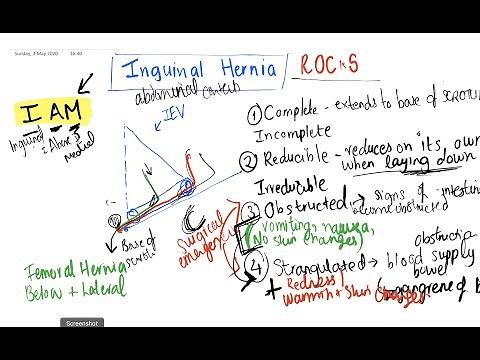 Sunday, 3 May 2020 16:40
Inguinal Hernia
ROCKS
abdominal contents
I AM
Inguinal = Above & medial
IEV
① Complete - extends to base of SCROTUM
Incomplete
② Reducible - reduces on its own
when laying down
Irreducible
③ Obstructed → signs of intestine
become obstructed
vomiting, nausea,
(No skin changes)
④ Strangulated → blood supply
obstruction
bowel
+ Redness
Warmth + Skin Changes
gangrene of b
Base of
Surgical
emergency
Femoral Hernia
Below + Lateral
Screenshot